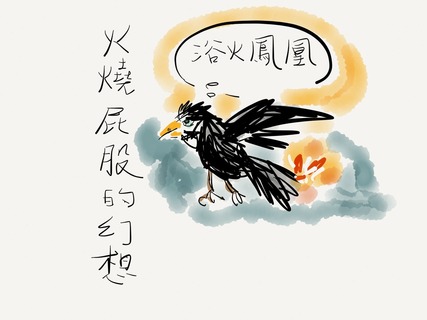 浴火鳳凰
火燒屁股的幻想